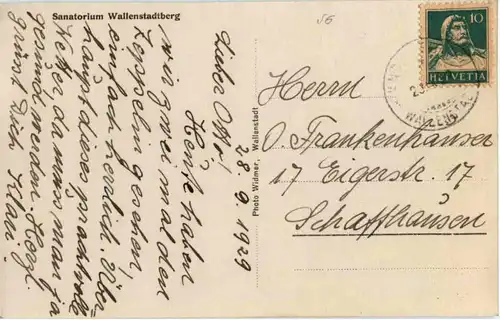 Sanatorium Wallenstadtberg
28.9.1929
Lieber Otto!
Heute haben
wir zwei mal den
Zeppelin gesehen,
einfach herrlich. Über-
haupt dises prachtvolle
Wetter, da muss man ja
gesund werden. Herzl.
grüsst Dich
Photo Widmer, Wallenstadt
56
10
HELVETIA
Herrn
O. Frankenhauser
17 Eigerstr. 17
Schaffhausen